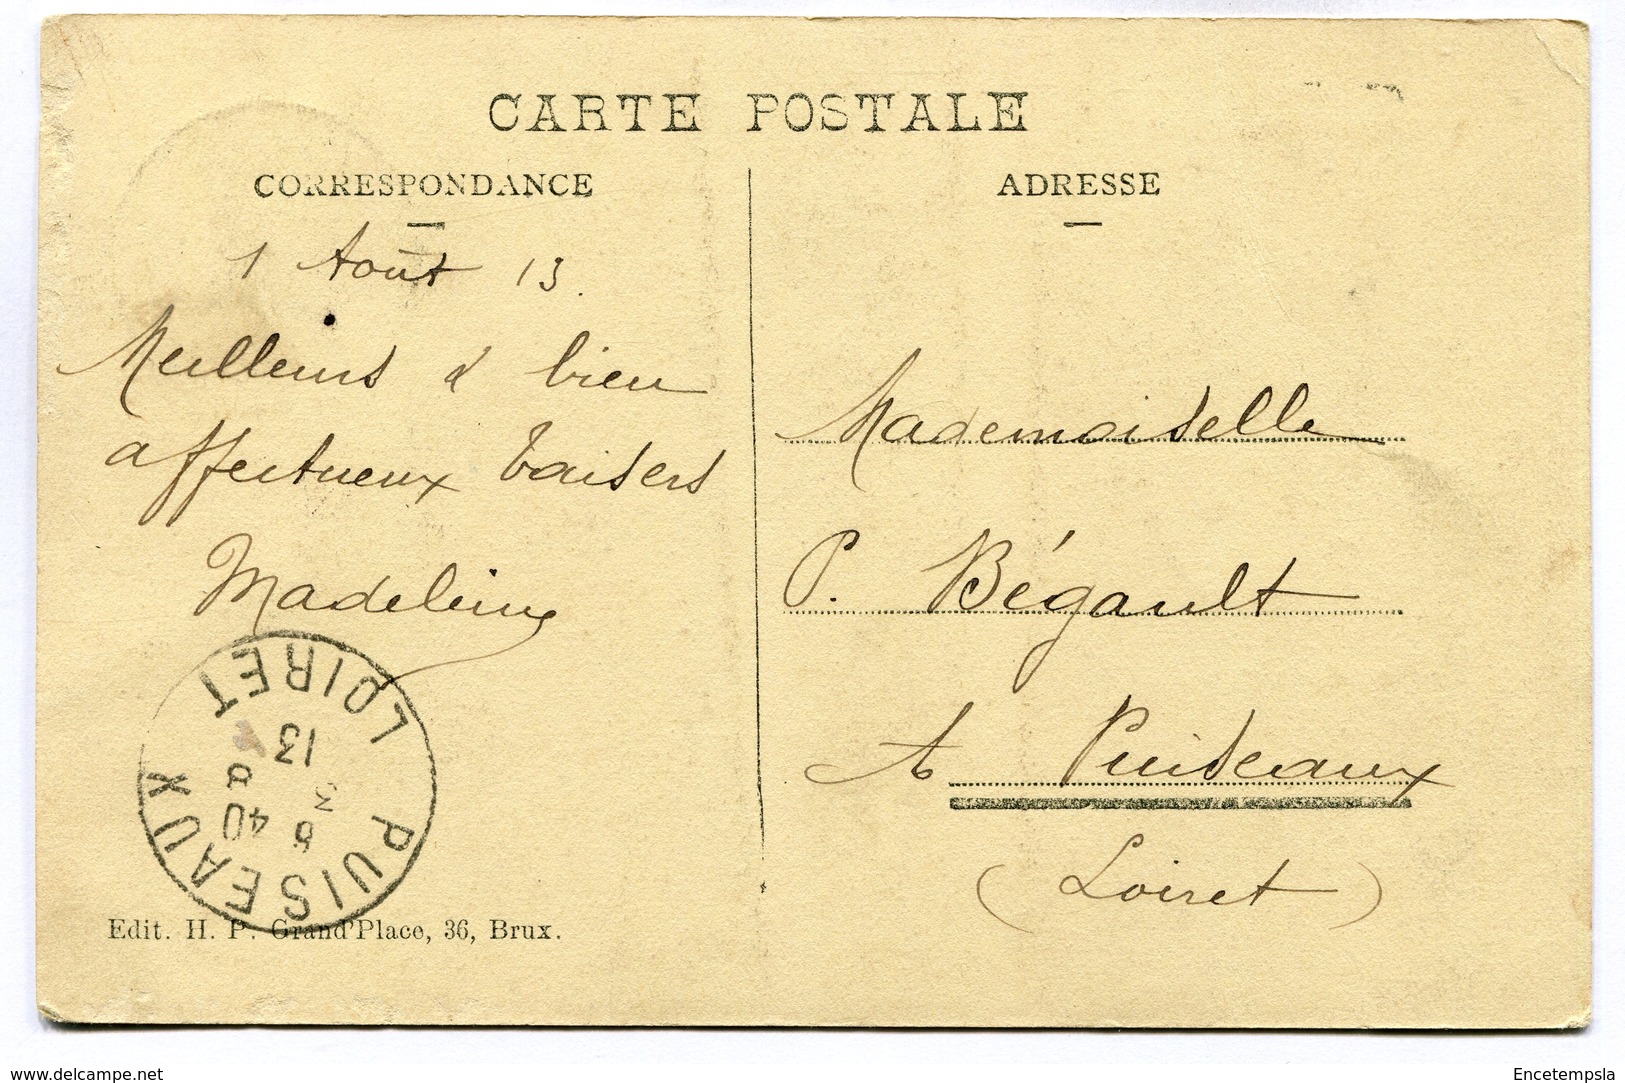 CARTE POSTALE
CORRESPONDANCE
1 Août 13.
Meilleurs & bien
affectueux baisers
Madeleine
ADRESSE
Mademoiselle
P. Bégault
à Puiseaux
(Loiret)
PUISEAUX
LOIRET
13
40
Edit. H. P. Grand'Place, 36, Brux.
www.delcampe.net
Encetempsla